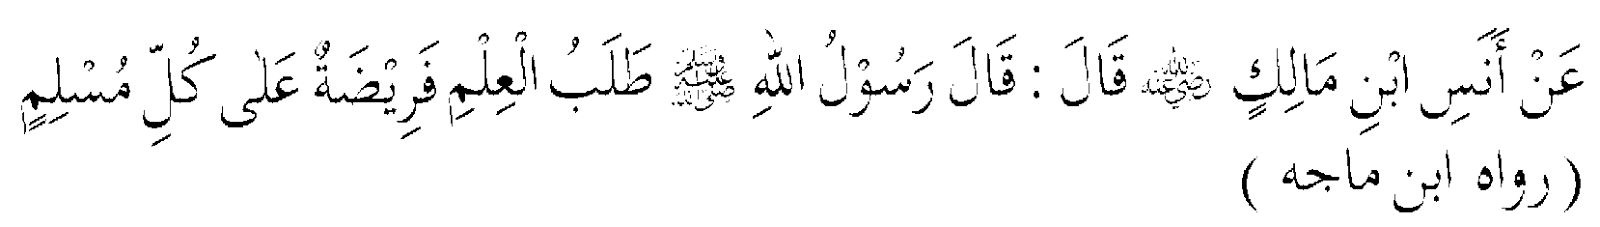 عَنْ أَنَسِ ابْنِ مَالِكٍ رضي الله عنه قَالَ : قَالَ رَسُوْلُ اللّٰهِ ﷺ طَلَبُ الْعِلْمِ فَرِيْضَةٌ عَلٰى كُلِّ مُسْلِمٍ
( رواه ابن ماجه )